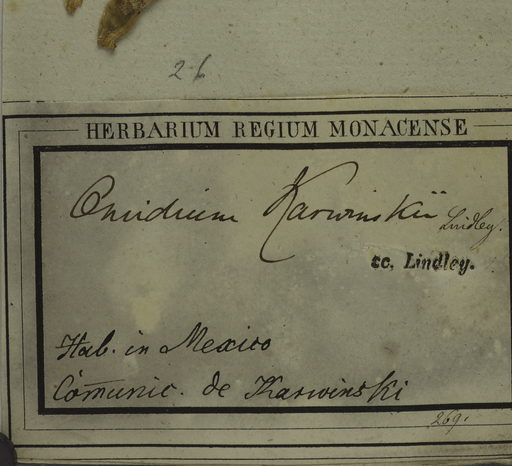 2 b
HERBARIUM REGIUM MONACENSE
Oncidium Karwinskii Lindley.
sc. Lindley.
Hab. in Mexico
Comunic. de Karwinski
269.